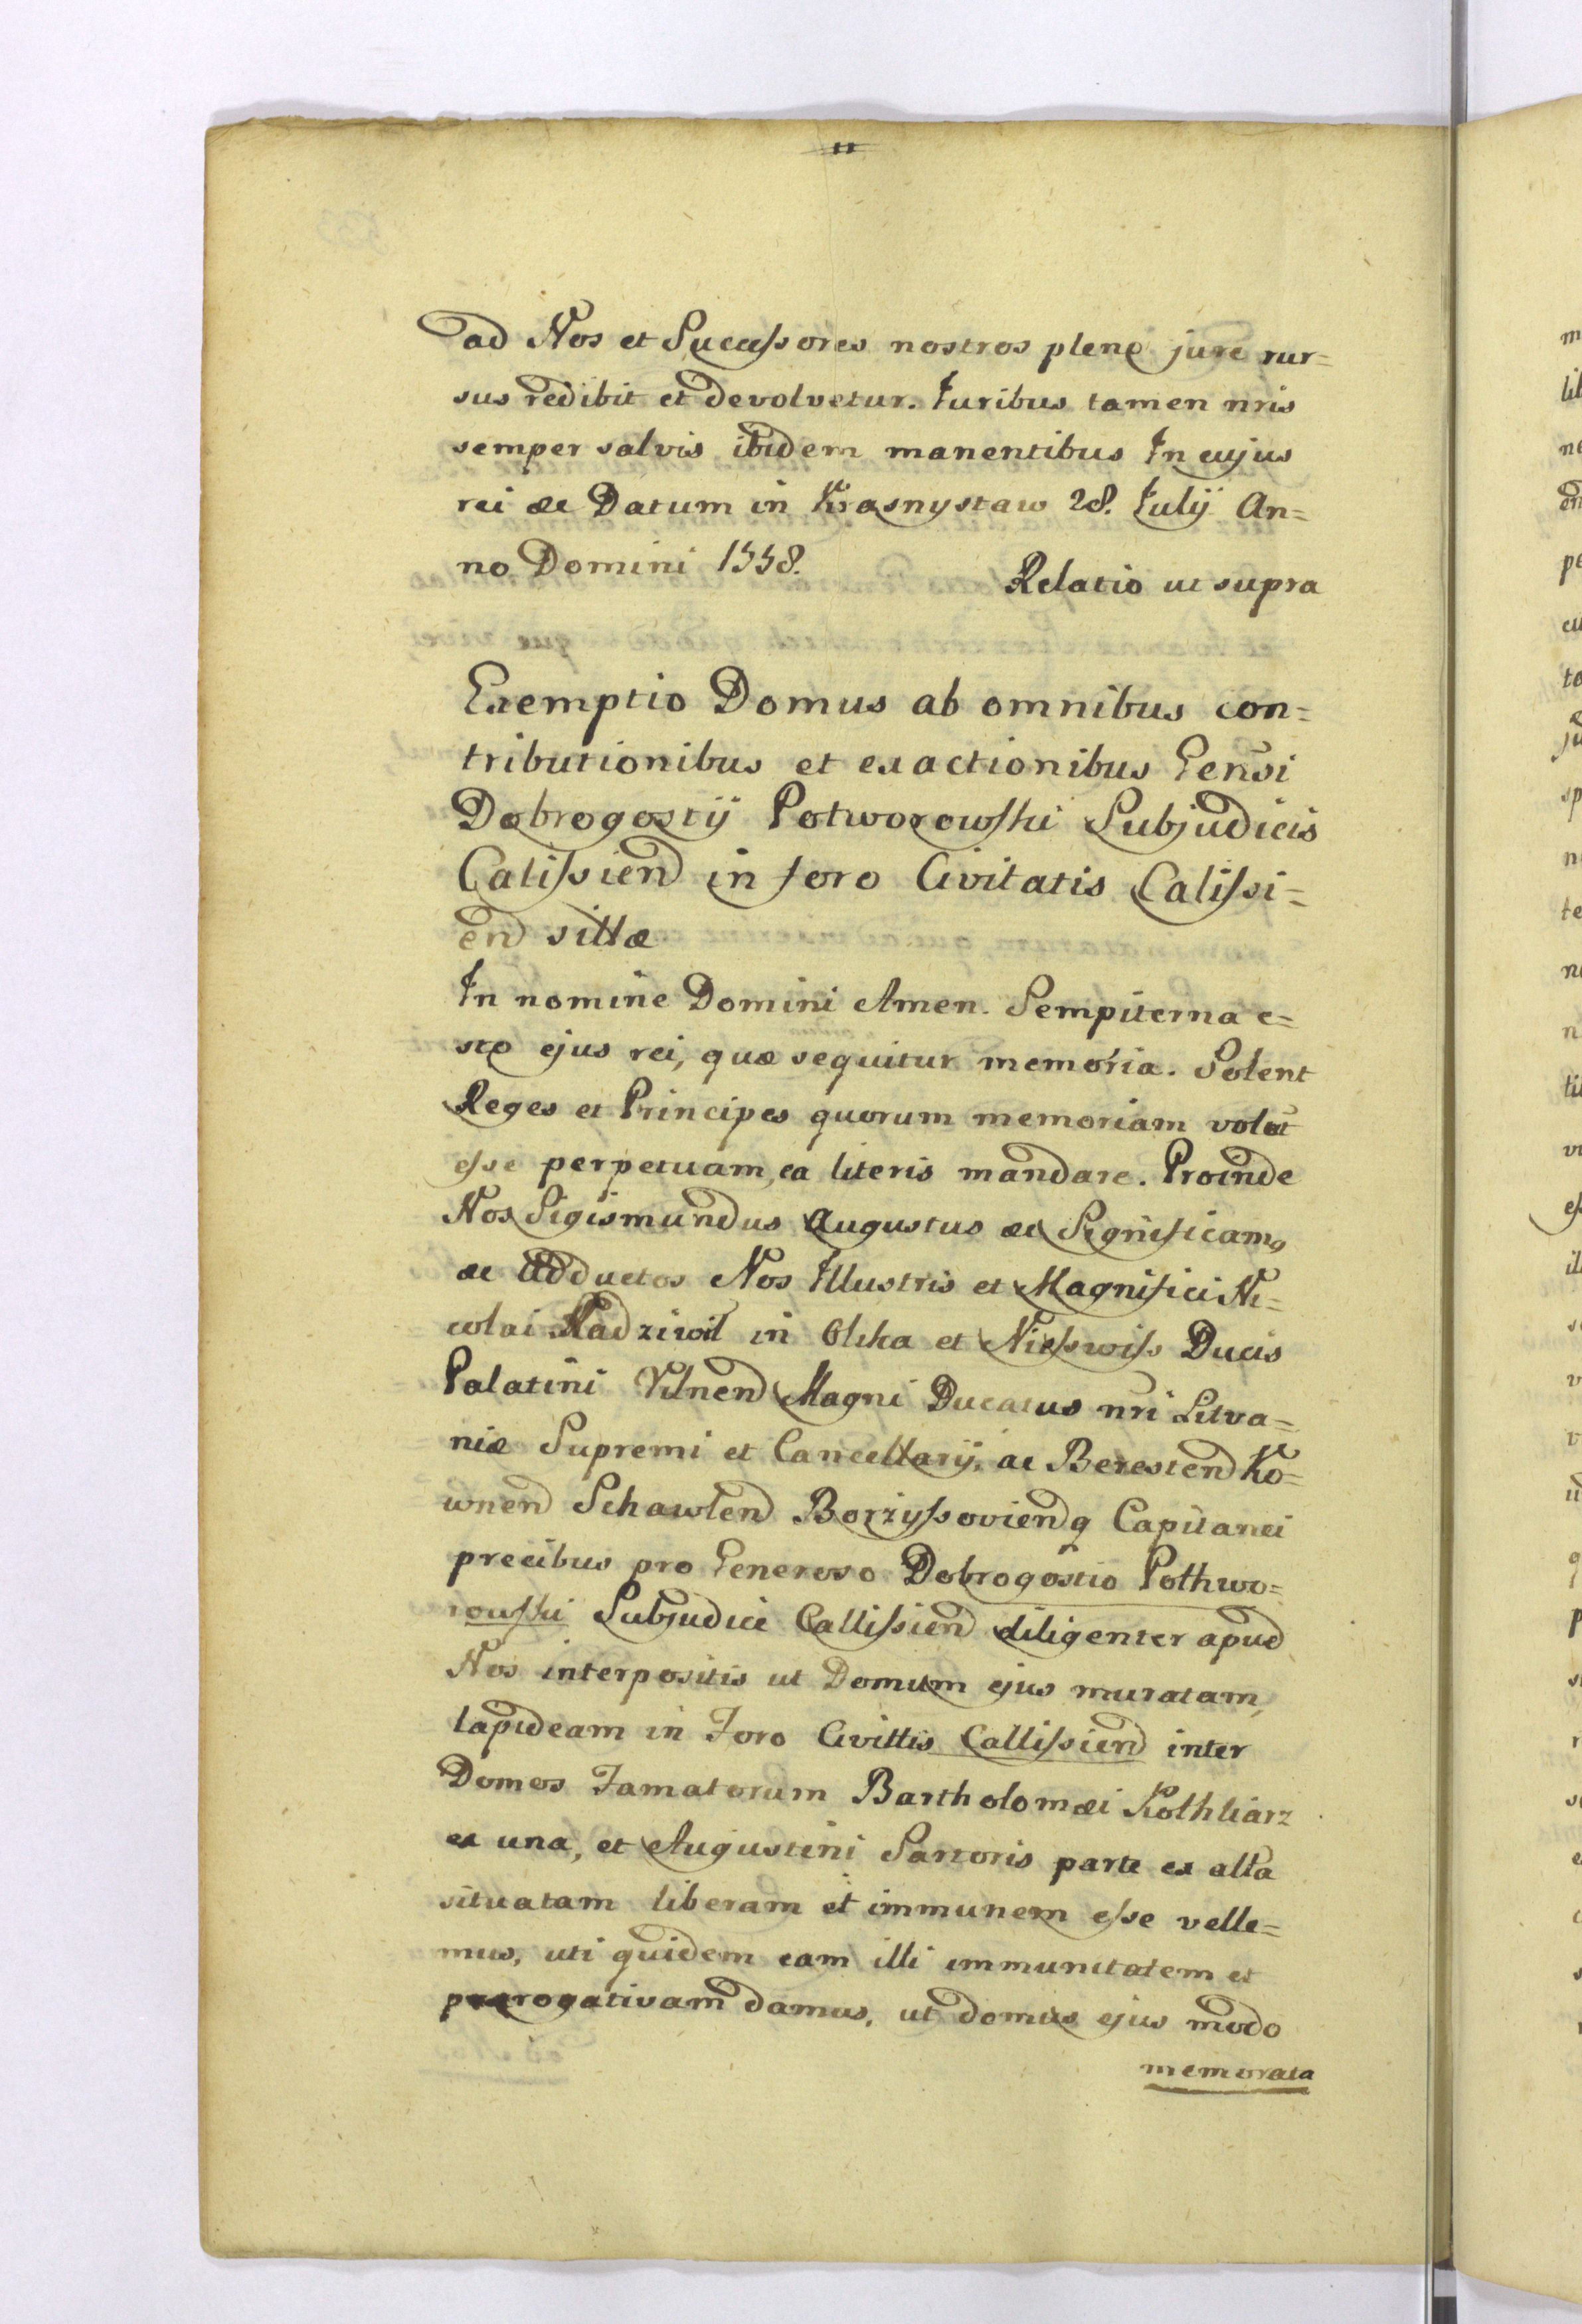 ad Nos et Successores nostros pleno jure rur=
sus redibit et devolvetur. Juribus tamen nris
semper salvis ibidem manentibus In cujus
rei &c Datum in Krasnystaw 28. Julij An=
no Domini 1558.
Relatio ut supra
Exemptio Domus ab omnibus con=
tributionibus et exactionibus Gensi
Dobrogostij Potworowski Subjudicis
Calissien in foro Civitatis Calissi=
en sittæ
In nomine Domini Amen. Sempiterna e=
sto ejus rei, quæ sequitur memoria. Solent
Reges et Principes quorum memoriam volut
esse perpetuam, ea literis mandare. Proinde
Nos Sigismundus Augustus &c Significamq
&c Adductos Nos Illustris et Magnifici Ni=
colai Radziwil in Olika et Niesswiss Ducis
Palatini Vilnen Magni Ducatus nri Litva=
niæ Supremi et Cancellarij, ac Beresten Ko=
wnen Schawlen Borzyssovienq Capitanei
precibus pro Generoso Dobrogostio Pothwo=
rowski Subjudice Callissien diligenter apud
Nos interpositis ut Domum ejus muratam,
lapideam in Foro Civittis Callissien inter
Domos Famatorum Bartholomæi Kothliarz
ex una, et Augustini Sartoris parte ex alta
situatam liberam et immunem esse velle=
mus, uti quidem eam illi immunitatem et
prærogativam damus, ut domus ejus modo
memorata